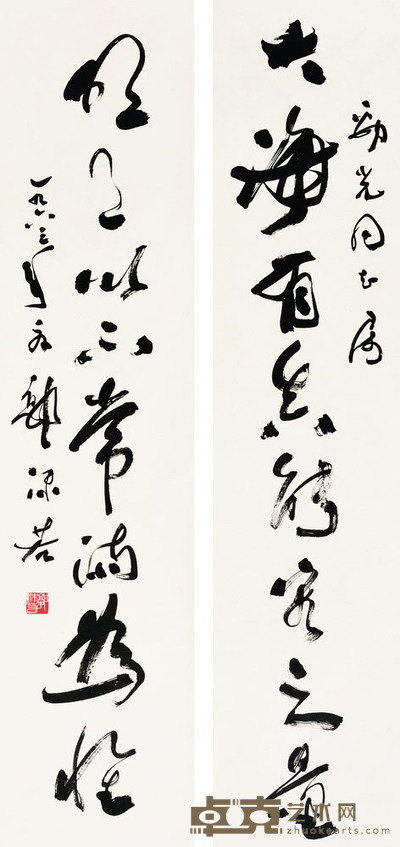 大海有真能容之量
劲光同志属
明月以不常满为心
一九六三年秋
郭沫若
卓克艺术网
www.zhuokearts.com